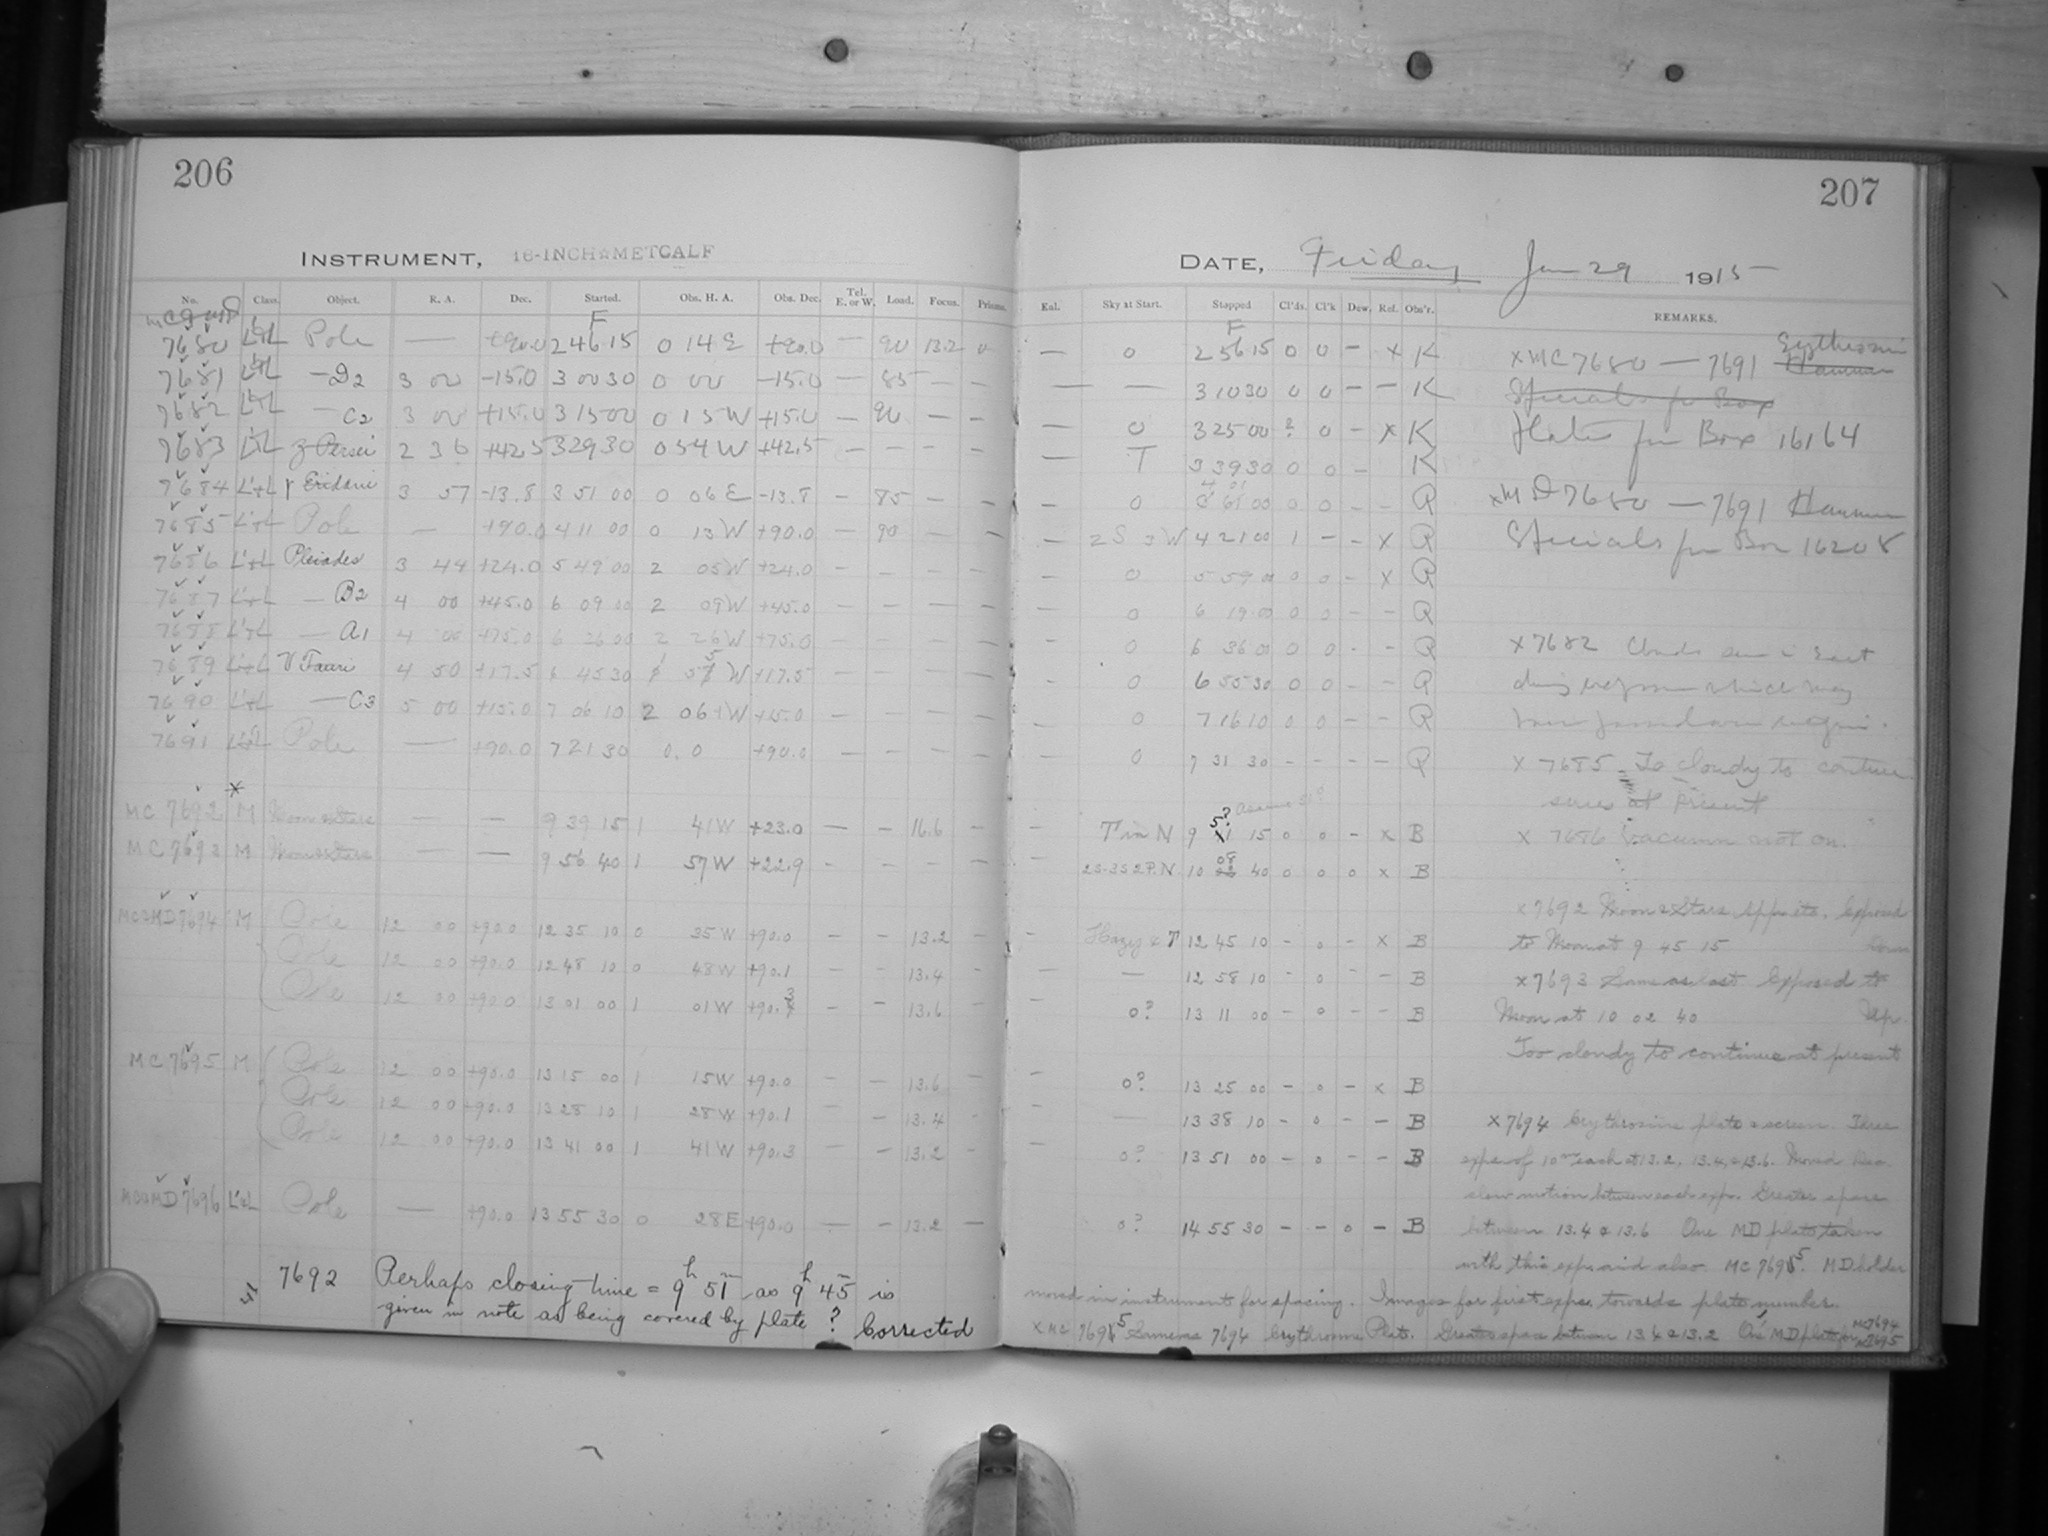 206
INSTRUMENT, 16-INCH METCALF
No. Class. Object. R. A. Dec. Started. Obs. H. A. Obs. Dec. Tel. E. or W. Load. Focus. Prisms.
MC and MD
F
7680 L'+L Pole — +90.0 2 46 15 0 14 E +90.0 — 90 13.2 0
7681 L'+L — D2 3 00 -15.0 3 00 30 0 00 -15.0 — 85 — —
7682 L'+L — C2 3 00 +15.0 3 15 00 0 15 W +15.0 — 90 — —
7683 L'+L Persei 2 36 +42.5 3 29 30 0 54 W +42.5 — — — —
7684 L'+L γ Eridani 3 57 -13.8 3 51 00 0 06 E -13.8 — 85 — —
7685 L'+L Pole — +90.0 4 11 00 0 13 W +90.0 — 90 — —
7686 L'+L Pleiades 3 44 +24.0 5 49 00 2 05 W +24.0 — — — —
7687 L'+L — B2 4 00 +45.0 6 09 00 2 09 W +45.0 — — — —
7688 L'+L — A1 4 00 +75.0 6 26 00 2 26 W +75.0 — — — —
7689 L'+L V Tauri 4 50 +17.5 6 45 30 1 55 W +17.5 — — — —
7690 L'+L — C3 5 00 +15.0 7 06 10 2 06 W +15.0 — — — —
7691 L'+L Pole — +90.0 7 21 30 0.0 +90.0 — — — —
*
MC 7692 M Moon & Stars — — 9 39 15 1 41 W +23.0 — — 16.6 —
MC 7693 M Moon & Stars — — 9 56 40 1 57 W +22.9 — — — —
MC & MD 7694 M Pole 12 00 +90.0 12 35 10 0 35 W +90.0 — — 13.2 —
Pole 12 00 +90.0 12 48 10 0 48 W +90.1 — — 13.4 —
Pole 12 00 +90.0 13 01 00 1 01 W +90.3 — — 13.6 —
MC 7695 M Pole 12 00 +90.0 13 15 00 1 15 W +90.0 — — 13.6 —
Pole 12 00 +90.0 13 28 10 1 28 W +90.1 — — 13.4 —
Pole 12 00 +90.0 13 41 00 1 41 W +90.3 — — 13.2 —
MC & MD 7696 L'+L Pole — +90.0 13 55 30 0 28 E +90.0 — — 13.2 —
7692 Perhaps closing time = 9h 51m as 9h 45m is
given in note as being covered by plate ? Corrected
207
DATE, Friday Jan 29 1915
Enl. Sky at Start. Stopped Cl'ds. Cl'k Dew. Rel. Obs'r. REMARKS.
F
— 0 2 56 15 0 0 — x K
— — 3 10 30 0 0 — — K
— 0 3 25 00 ? 0 — x K
— T 3 39 30 0 0 — K
— 0 4 01 00 0 0 — — R
— 2S 3W 4 21 00 1 — — x R
— 0 5 59 00 0 0 — x R
— 0 6 19 00 0 0 — — R
0 6 36 00 0 0 — — R
— 0 6 55 30 0 0 — — R
— 0 7 16 10 0 0 — — R
0 7 31 30 — — — — R
5? assume 51?
— T in N 9 11 15 0 0 — x B
08
2S-3S 2P.N. 10 40 0 0 0 x B
— Hazy & T 12 45 10 — 0 — x B
— — 12 58 10 — 0 B
— 0? 13 11 00 — 0 — — B
— 0? 13 25 00 — 0 — x B
— — 13 38 10 — 0 — — B
— 0? 13 51 00 — 0 — — B
0? 14 55 30 — — 0 — B
Erythrosin
x MC 7680 — 7691 Hammer
Specials for Box
Plates for Box 16164
x MD 7680 — 7691 Hammer
Specials for Box 16208
x 7682 Clouds seen in East
x 7685 To cloudy to continue
series at Present
x 7686 Vacuum not on.
x 7692 Moon & Stars opposite. Exposed
to Moon at 9 45 15 Down
x 7693 Same as last Exposed to
Moon at 10 02 40 Up
Too cloudy to continue at present
x 7694 Erythrosine plate & screen. Three
exps of 10m each at 13.2, 13.4, & 13.6. Moved Dec.
slow motion between each exp. Greater space
between 13.4 & 13.6 One MD plate taken
with this exp. and also MC 7695. MD holder
moved in instrument for spacing. Images for first exps. towards plate number.
x MC 7695 Same as 7694 Erythrosine Plate. Greater space between 13.4 & 13.2 One MD plate for MC7694 MC7695